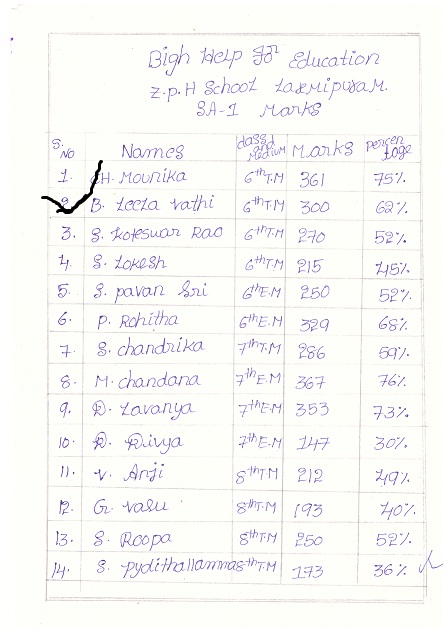 Bigh Help For Education
Z.P.H School Laxmipuram.
SA-1 Marks
S. No Names class and Medium Marks percentage
1. CH. Mounika 6th T.M 361 75%
2. B. Leela vathi 6th T.M 300 62%
3. S. Koteswar Rao 6th T.M 270 52%
4. S. Lokesh 6th T.M 215 45%
5. S. pavan Sri 6th E.M 250 52%
6. P. Rohitha 6th E.M 329 68%
7. S. chandrika 7th T.M 286 59%
8. M. chandana 7th E.M 367 76%
9. D. Lavanya 7th E.M 353 73%
10. D. Divya 7th E.M 147 30%
11. V. Anji 8th TM 212 49%
12. G. vasu 8th T.M 193 40%
13. S. Roopa 8th T.M 250 52%
14. S. pydithallamma 8th T.M 173 36%